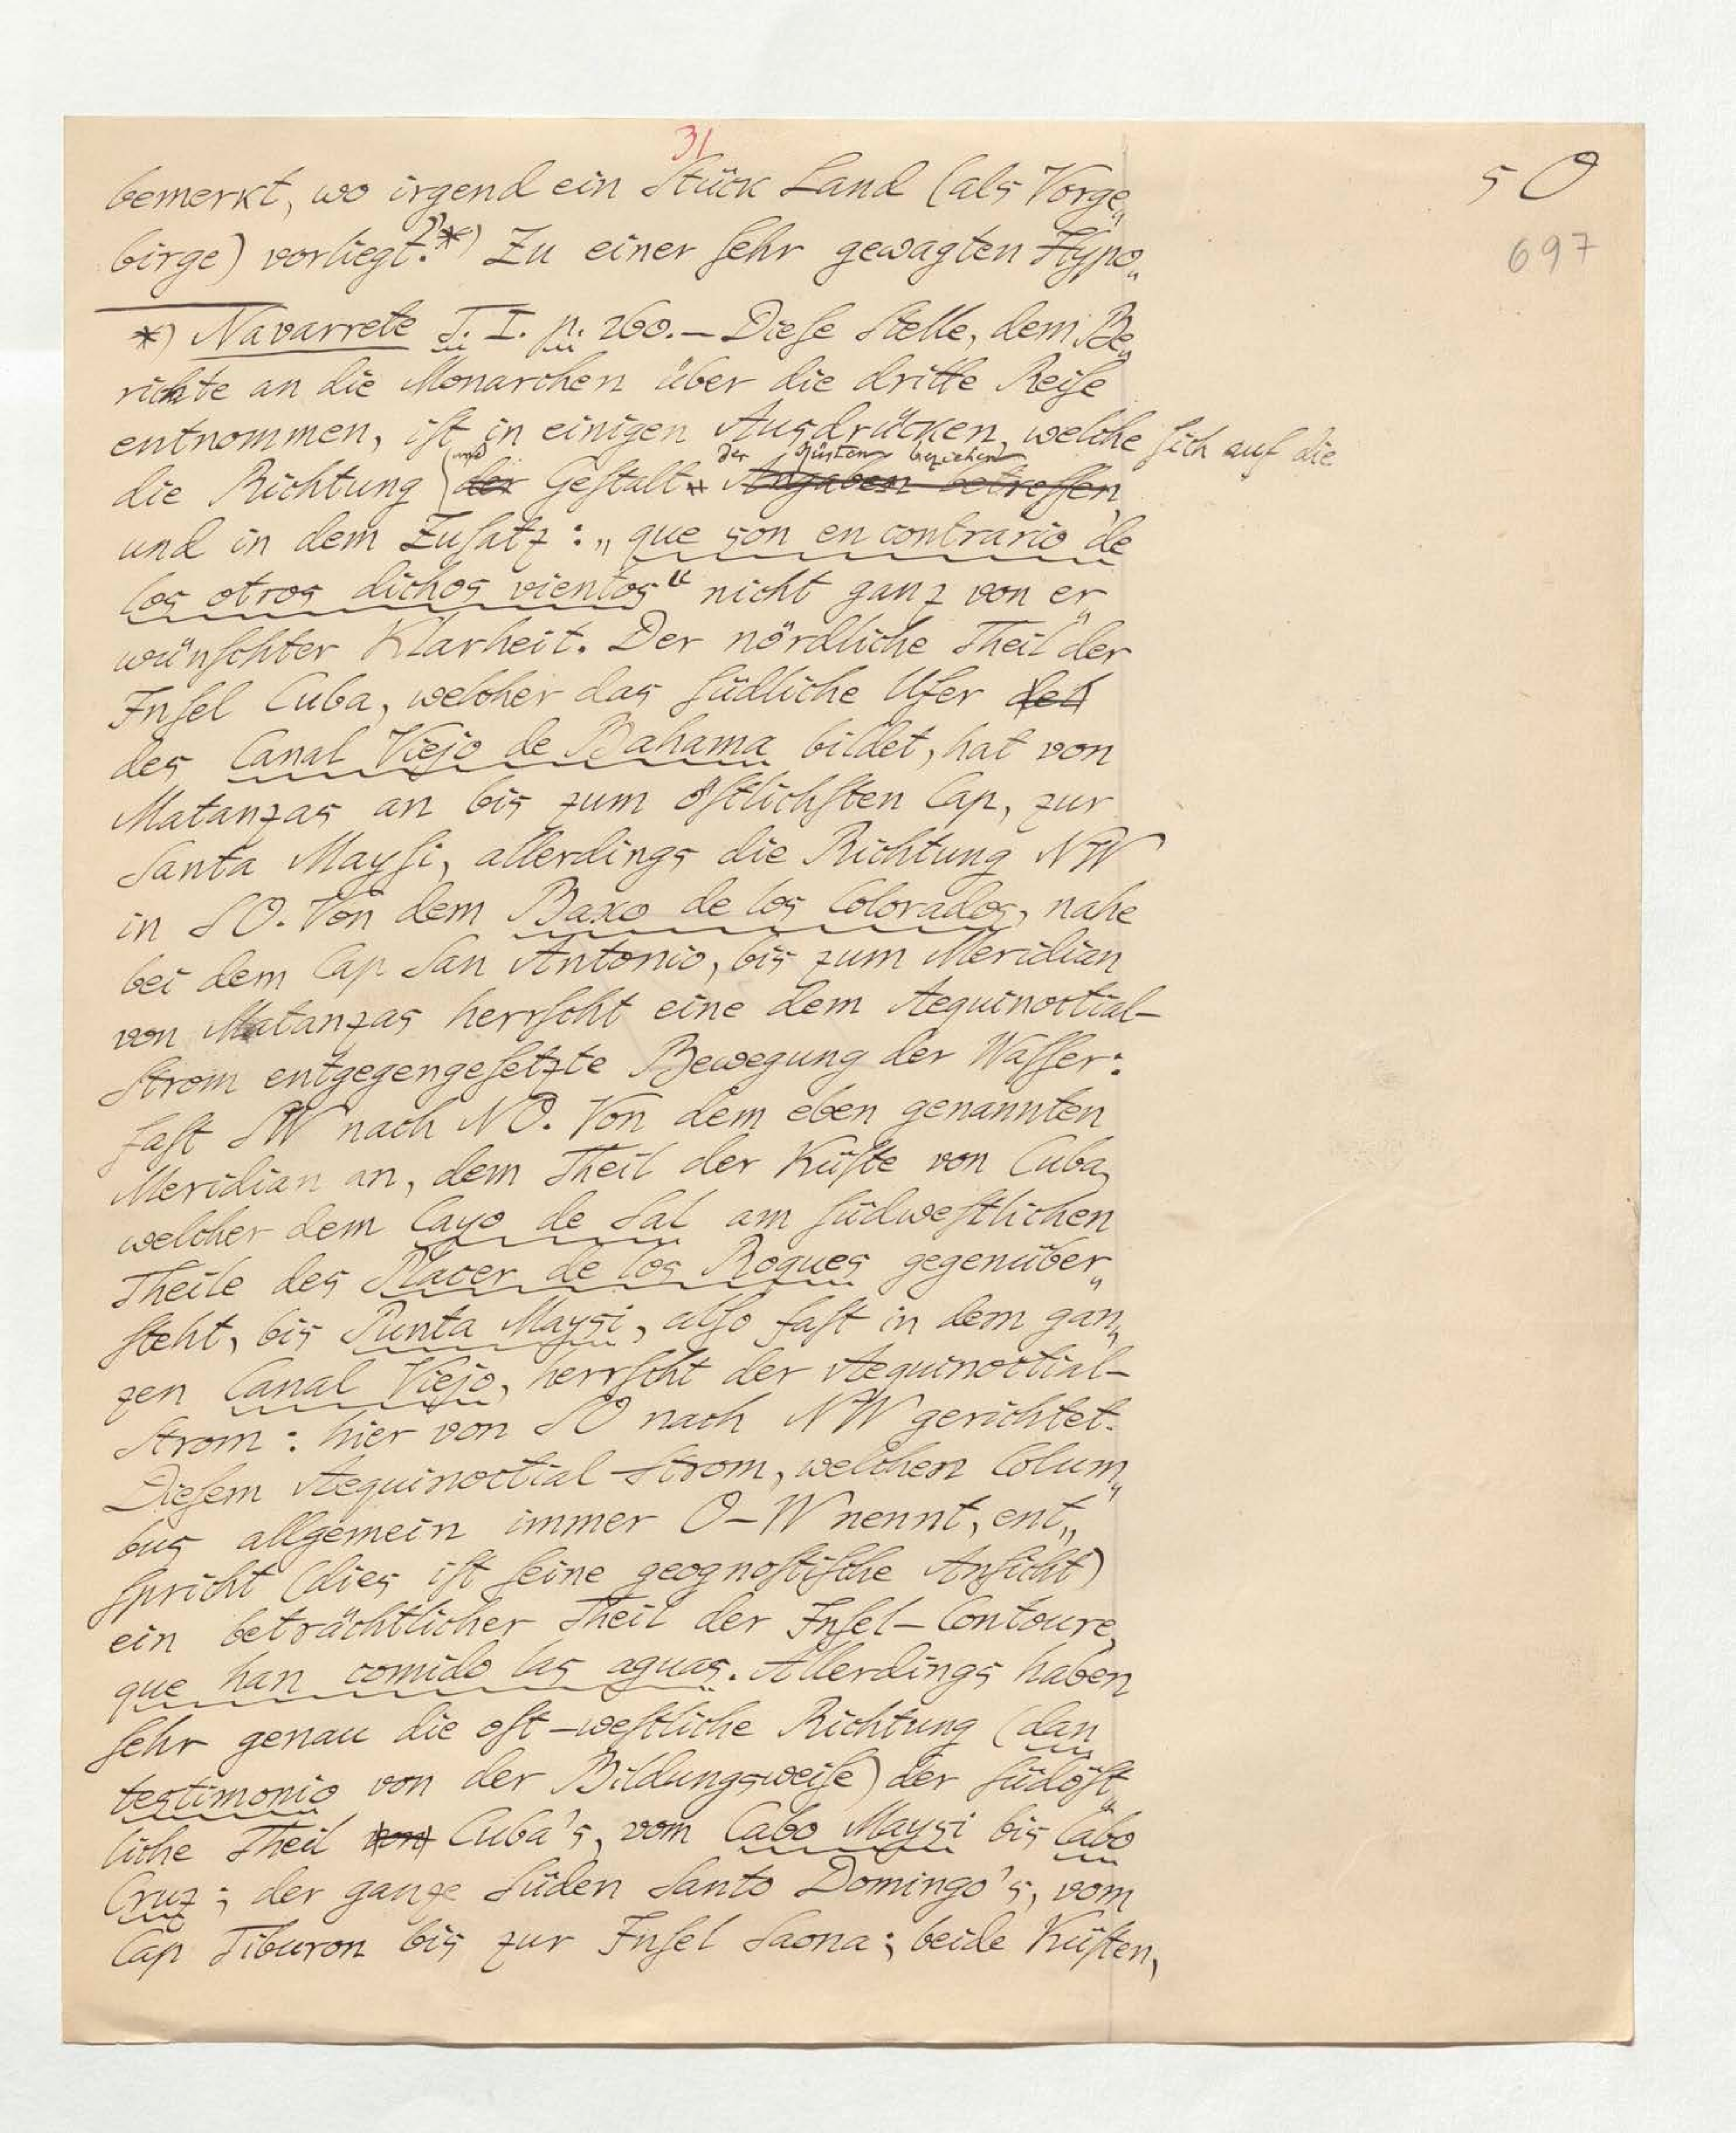 31
50
697
bemerkt, wo irgend ein Stück Land (als Vorge„
birge) vorliegt?*) Zu einer sehr gewagten Hypo„
*) Navarrete T. I. p. 260. — Diese Stelle, dem Be„
richte an die Monarchen über die dritte Reise
entnommen, ist in einigen Ausdrücken, welche sich auf die
und der Küsten beziehen
die Richtung der Gestalt Angaben betreffen,
und in dem Zusatz: „que son en contrario de
los otros dichos vientos“ nicht ganz von er„
wünschter Klarheit. Der nördliche Theil der
Insel Cuba, welcher das südliche Ufer des
des Canal Viejo de Bahama bildet, hat von
Matanzas an bis zum östlichsten Cap, zur
Santa Maysi, allerdings die Richtung NW
in SO. Von dem Baxo de los Colorados, nahe
bei dem Cap San Antonio, bis zum Meridian
von Matanzas herrscht eine dem Aequinoctial-
Strom entgegengesetzte Bewegung der Wasser:
fast SW nach NO. Von dem eben genannten
Meridian an, dem Theil der Küste von Cuba,
welcher dem Cayo de Sal am südwestlichen
Theile des Placer de los Roques gegenüber„
steht, bis Punta Maysi, also fast in dem gan„
zen Canal Viejo, herrscht der Aequinoctial-
Strom: hier von SO nach NW gerichtet.
Diesem Aequinoctial-Strom, welchen Colum„
bus allgemein immer O-W nennt, ent„
spricht (dies ist seine geognostische Ansicht)
ein beträchtlicher Theil der Insel-Contoure,
que han comido las aguas. Allerdings haben
sehr genau die ost-westliche Richtung (dan
testimonio von der Bildungsweise) der südöst„
liche Theil von Cuba's, vom Cabo Maysi bis Cabo
Cruz; der ganze Süden Santo Domingo's, vom
Cap Tiburon bis zur Insel Saona; beide Küsten,